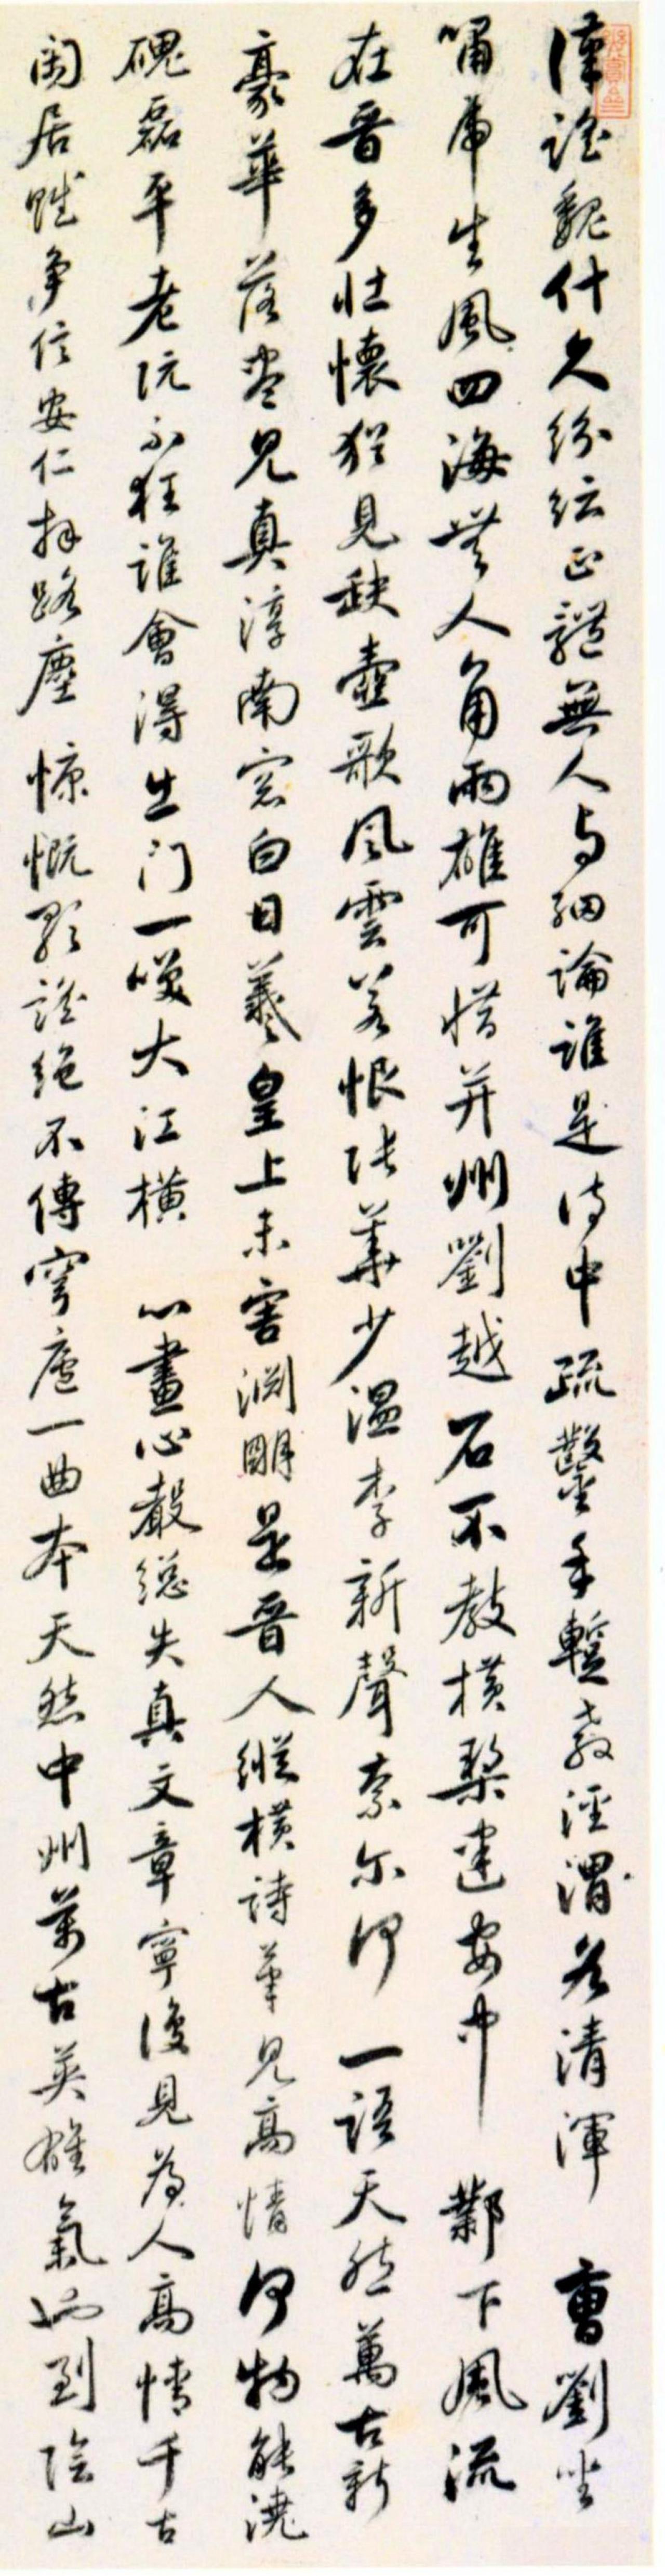 漢謠魏什久紛紜正體無人与細論誰是詩中疏鑿手暫教涇渭各清渾　曹劉坐
嘯虎生風四海無人角兩雄可惜并州劉越石不教橫槊建安中　鄴下風流
在晉多壯懷猶見缺壺歌風雲若恨張華少溫李新聲奈尔何　一語天然萬古新
豪華落盡見真淳南窓白日羲皇上未害淵明是晉人縱橫詩筆見高情何物能澆
磈磊平老阮不狂誰會得出门一嘆大江橫　心畫心聲總失真文章寧復見為人高情千古
閑居賦爭信安仁拜路塵　慷慨歌謠絕不傳穹廬一曲本天然中州萬古英雄氣也到陰山